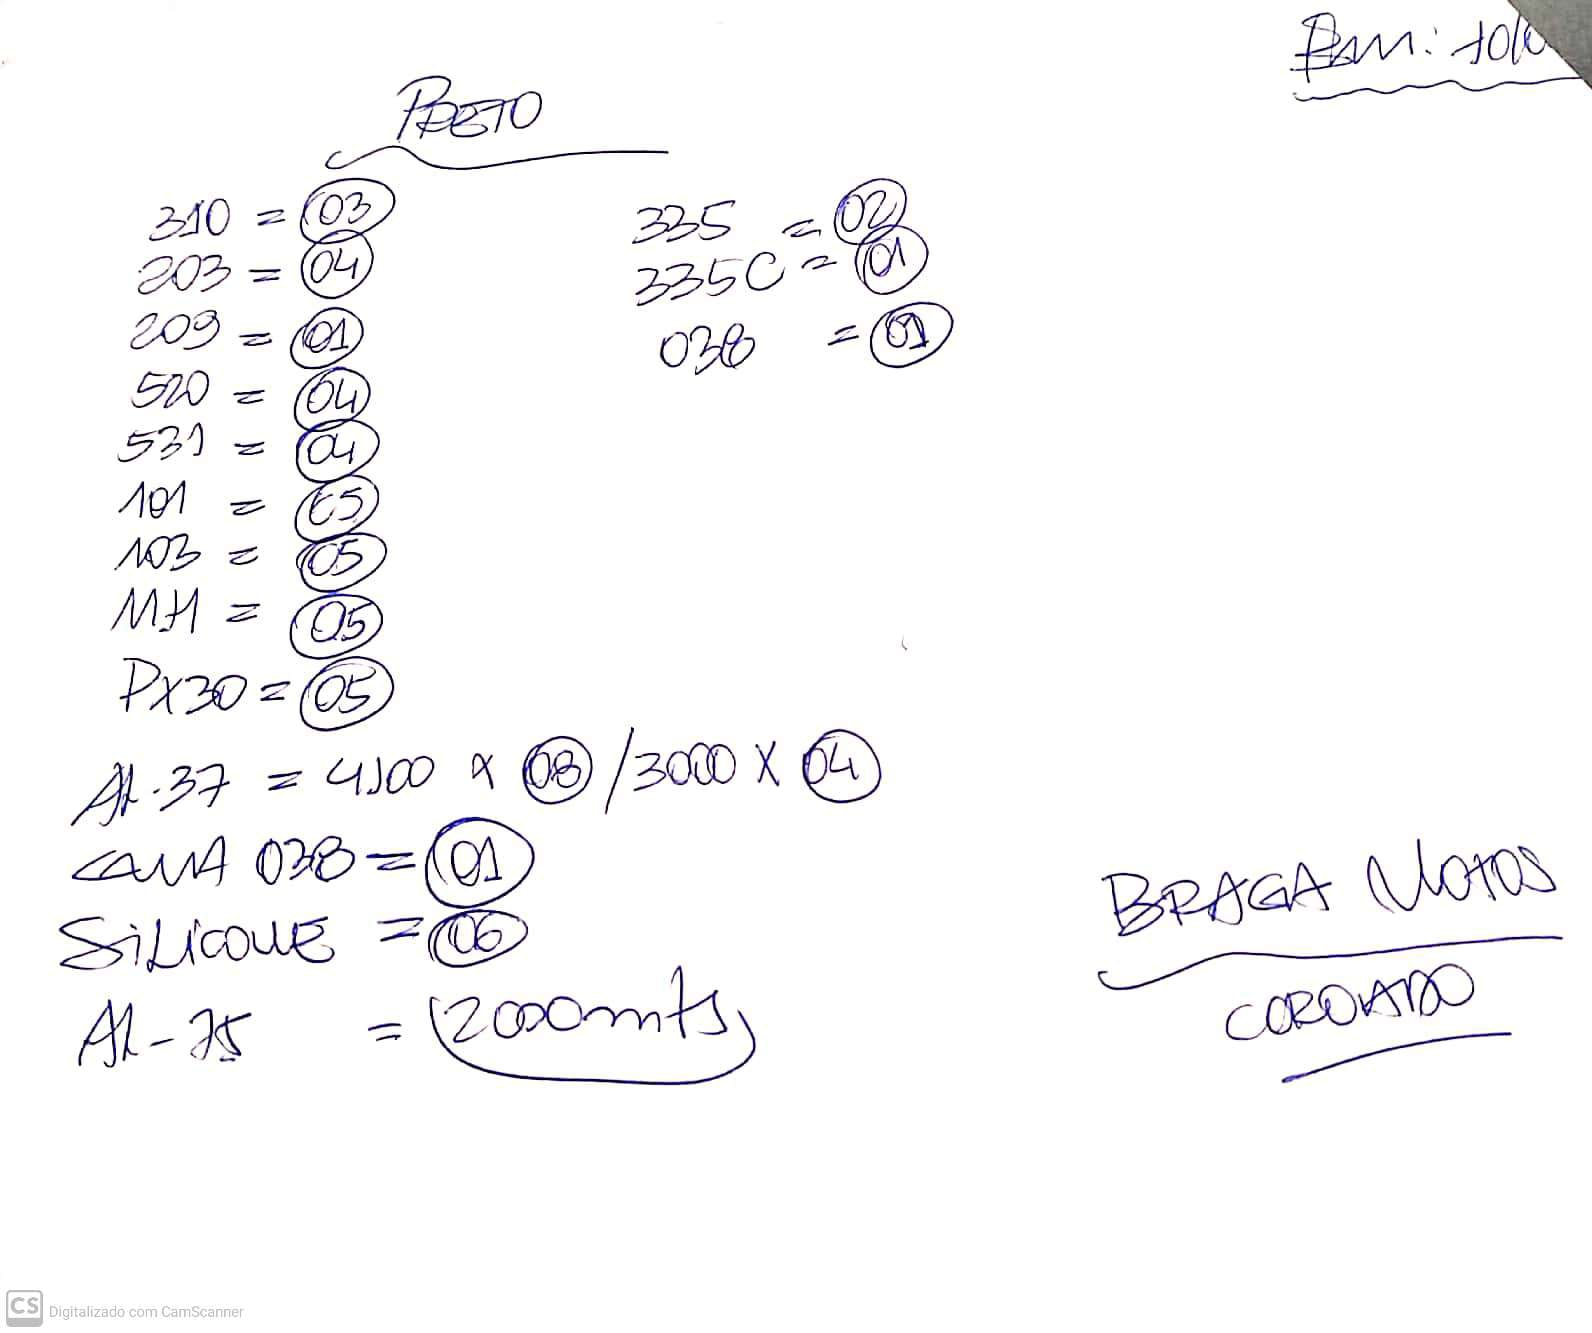 PRETO
310 = 03
203 = 04
209 = 01
520 = 04
531 = 04
101 = 05
103 = 05
MH = 05
PX30 = 05
335 = 02
335C = 01
038 = 01
AL-37 = 4100 x 08 / 3000 x 04
CANA 038 = 01
SILICONE = 06
AL-25 = 2000mts
BRAGA MOTOS
COROADO
CS Digitalizado com CamScanner